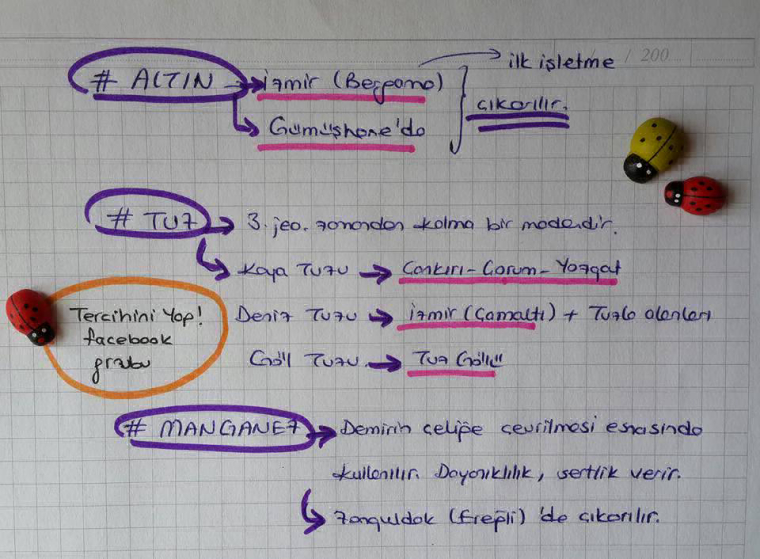 / 200
ilk işletme
# ALTIN → İzmir (Bergama)
çıkarılır.
Gümüşhane'de
# TUZ → 3. jeo. zamandan kalma bir madendir.
Kaya Tuzu → Çankırı - Çorum - Yozgat
Tercihini Yap!
facebook
grubu
Deniz Tuzu → İzmir (Çamaltı) + Tuzla alanları
Göl Tuzu → Tuz Gölü
# MANGANEZ → Demirin çeliğe çevrilmesi esnasında
kullanılır. Dayanıklılık, sertlik verir.
Zonguldak (Ereğli) 'de çıkarılır.